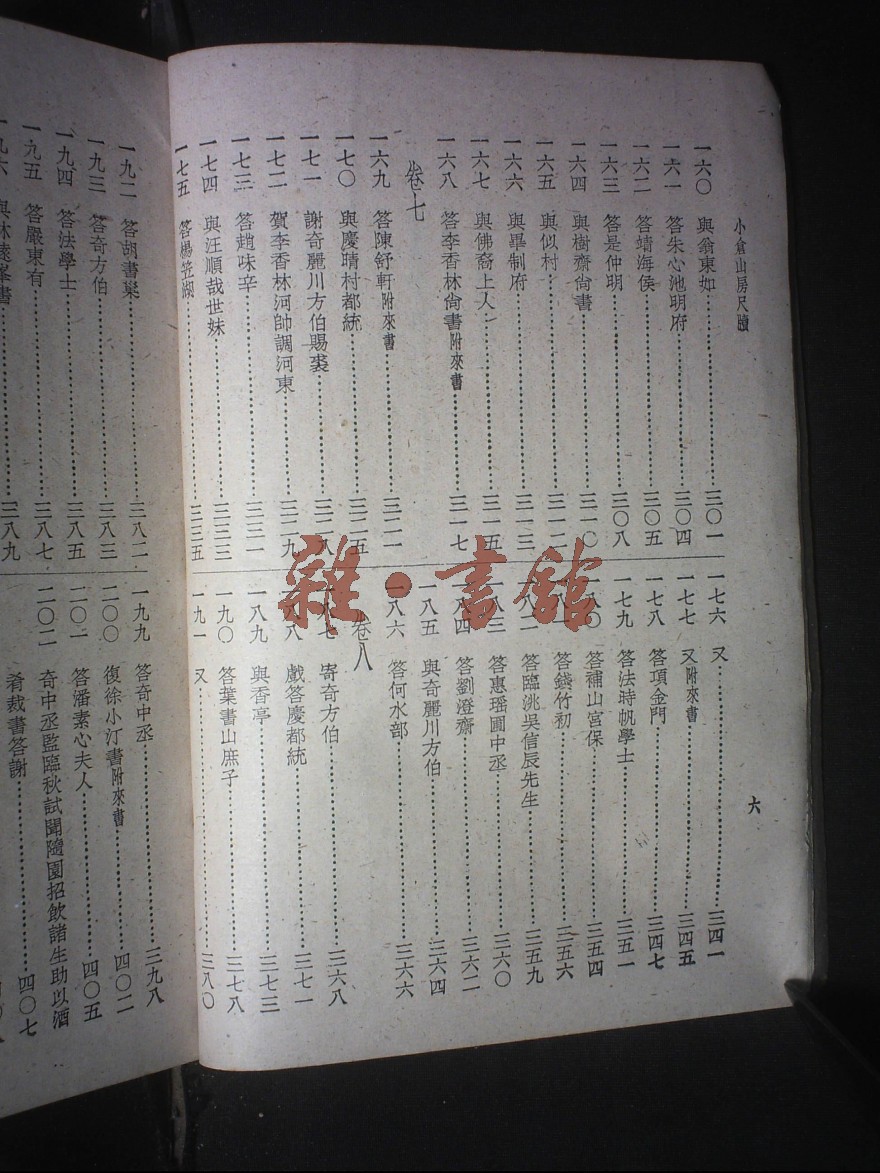 小倉山房尺牘
一六〇 與翁東如 三〇一
一六一 答朱心池明府 三〇四
一六二 答靖海侯 三〇五
一六三 答是仲明 三〇八
一六四 與樹齋尙書 三一〇
一六五 與似村 三一二
一六六 與畢制府 三一三
一六七 與佛裔上人 三一五
一六八 答李香林尙書附來書 三一七
卷七
一六九 答陳舒軒附來書 三二一
一七〇 與慶晴村都統 三二五
一七一 謝奇麗川方伯賜裘 三二八
一七二 賀李香林河帥調河東 三二九
一七三 答趙味辛 三三一
一七四 與汪順哉世妹 三三三
一七五 答楊笠湖 三三五
一七六 又 三四一
一七七 又附來書 三四五
一七八 答項金門 三四七
一七九 答法時帆學士 三五一
一八〇 答補山宮保 三五四
答錢竹初 三五六
一八二 答臨洮吳信辰先生 三五九
一八三 答惠瑤圃中丞 三六〇
一八四 答劉澄齋 三六二
一八五 與奇麗川方伯 三六四
一八六 答何水部 三六六
卷八
一八七 寄奇方伯 三六八
一八八 戲答慶都統 三七一
一八九 與香亭 三七三
一九〇 答葉書山庶子 三七八
一九一 又 三八〇
六
雜·書館
一九二 答胡書巢 三八二
一九三 答奇方伯 三八三
一九四 答法學士 三八五
一九五 答嚴東有 三八七
一九六 與林遠峯書 三八九
一九九 答奇中丞 三九八
二〇〇 復徐小汀書附來書 四〇二
二〇一 答潘素心夫人 四〇五
二〇二 奇中丞監臨秋試聞隨園招飲諸生助以酒
肴裁書答謝 四〇七